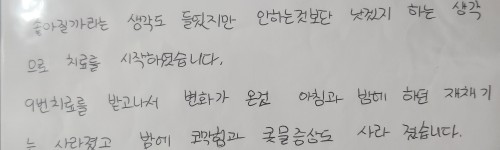 좋아질까라는 생각도 들찟지만 안하는것보단 낫겠지 하는 생각
으로 치료를 시작하였습니다.
9번치료를 받고나서 변화가 온건 아침과 밤에 하던 재채기
는 사라졌고 밤에 코막힘과 콧물증상도 사라 졌습니다.